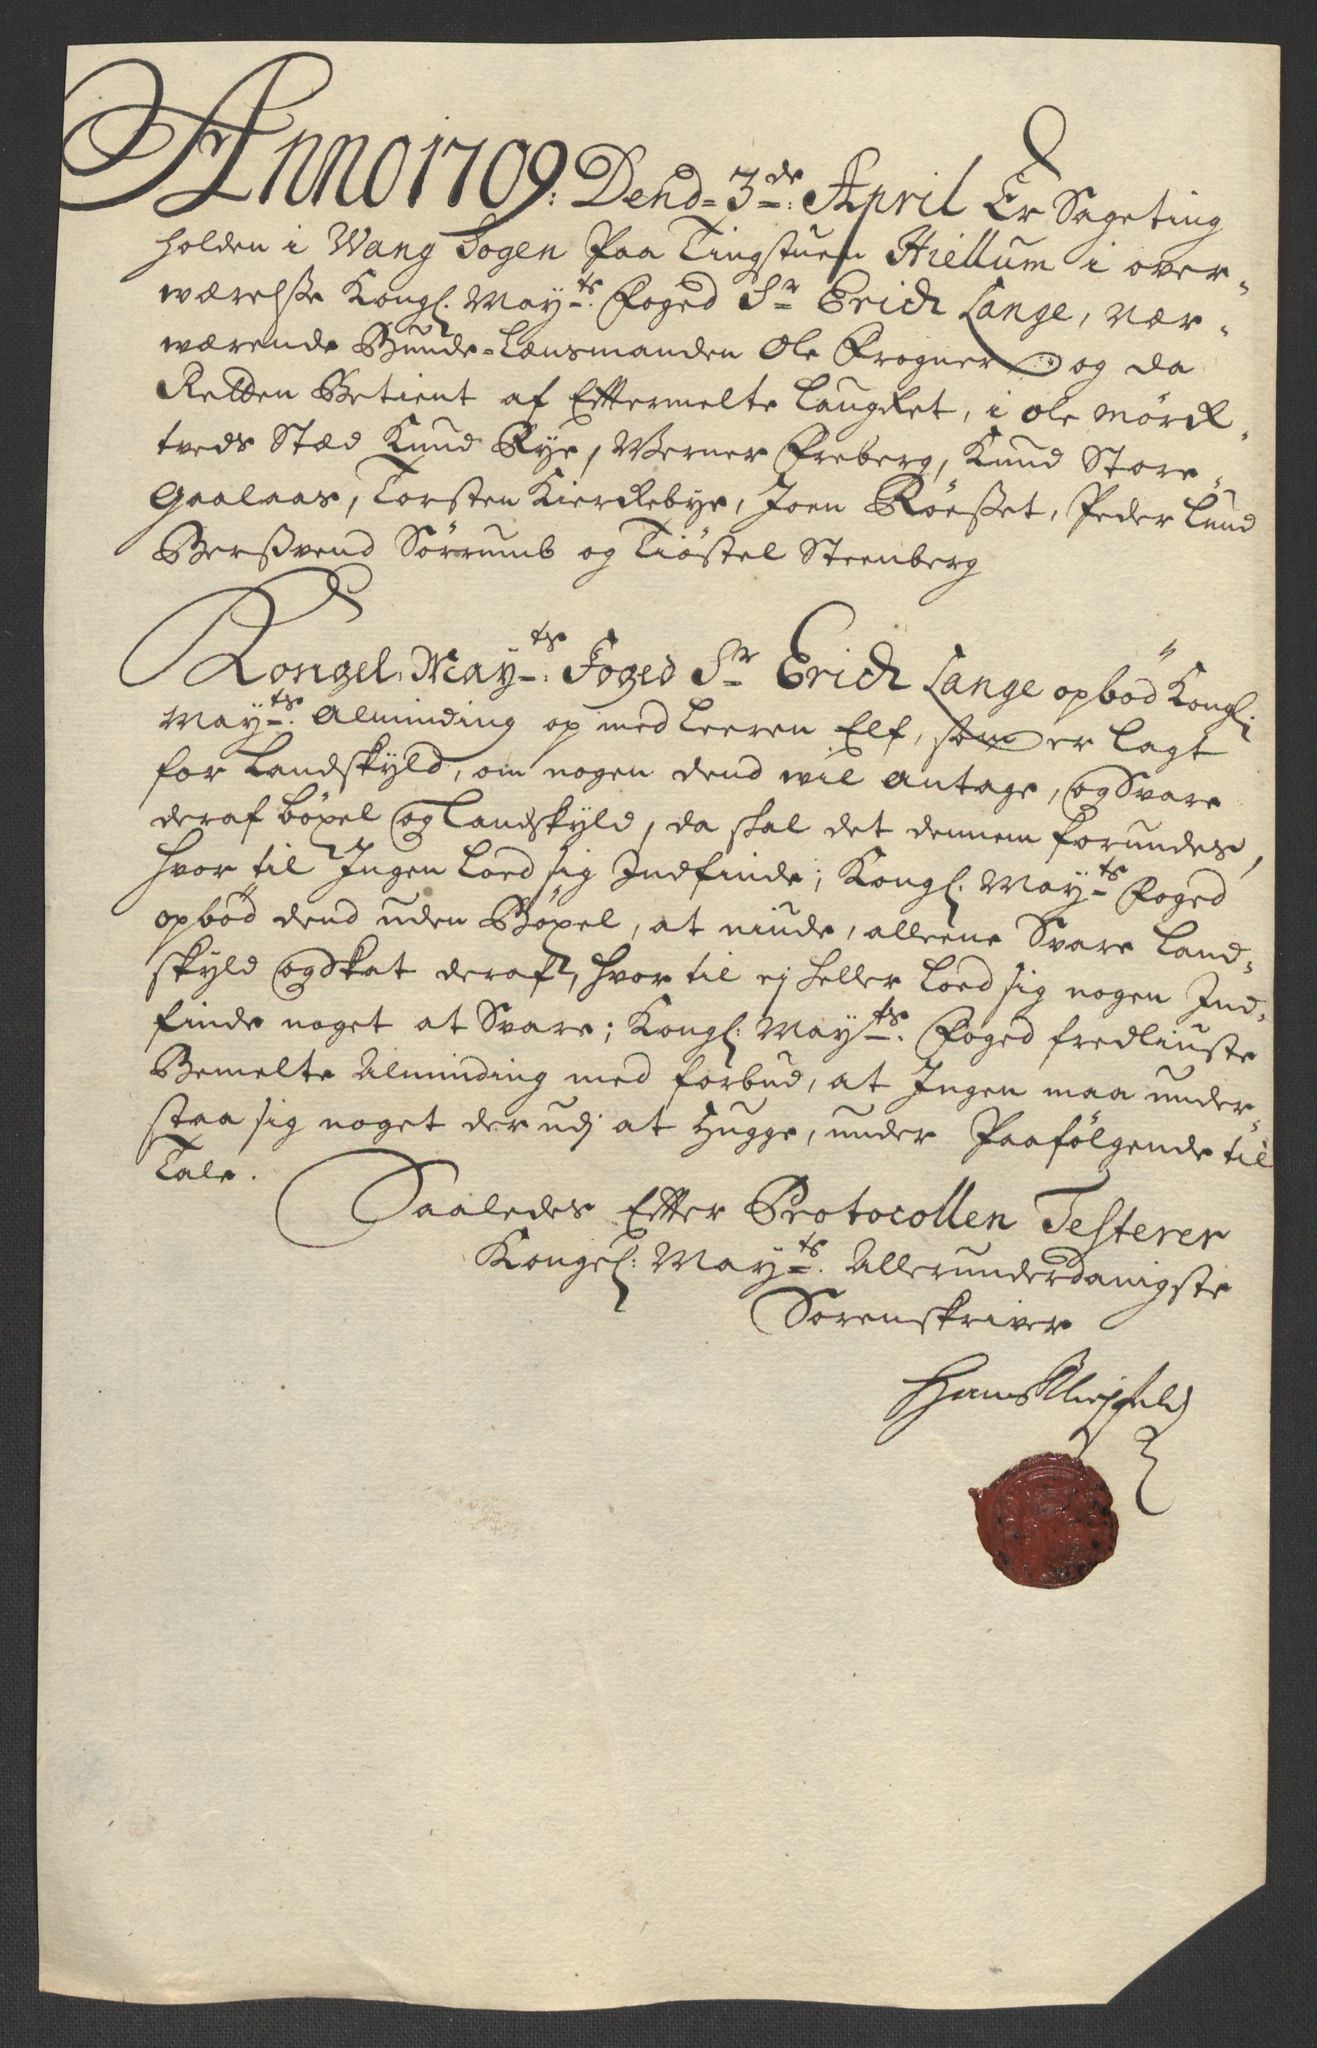 Anno 1709: Dend 3de: April Er Sageting
holden i Wang Sogen Paa Tingstuen Hiellum i over-
wærelsse Kongl: Mayts: Foged Sr Erich Lange, nær-
wærende Bunde-Lænsmanden Ole Frogner og da
Retten Betient af Efftermelte Laugret, i Ole Mørch-
tveds Stæd Knud Rye, Werner Freberg, Knud Store-
Gaalaas, Torsten Kierkebye, Joen Röesset, Peder Lund
Berssvend Sörrumb og Tiöstel Steenberg
Kongel: Mayts: Foged Sr Erich Lange opböd Kongl:
Mayts: Alminding op med Leeren Elf, som er lagt
for Landskyld, om nogen dend wil antage, og Svare
deraf böxel og Landskyld, da skal det dennem forundes,
hvor til Ingen loed sig Indfinde; Kongl: Mayts Foged
opböd dend uden Böxel, at niude, alleene Svare Land-
skyld og Skat deraf, hvor til ej heller loed sig nogen Ind-
finde noget at Svare; Kongl: Mayts: Foged fredliuste
Bemelte Alminding med forbud, at Ingen maa under-
staa sig noget der udj at Hugge, under Paafölgende til
Tale.
Saaledes Effter Protocollen Testerer
Kongel: Mayts: Allerunderdanigste
Sorenskriver
Hans